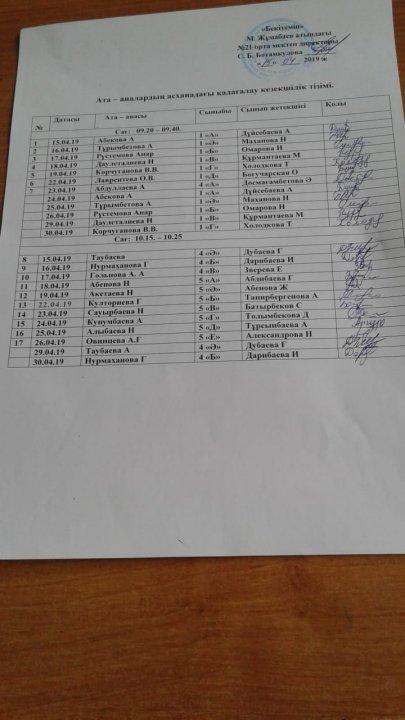 «Бекітемін»
М. Жұмабаев атындағы
№21 орта мектеп директоры
С. Б. Ботамқулова
«15» 04 2019 ж
Ата – аналардың асханадағы қадағалау кезекшілік тізімі.
№ Датасы Ата – анасы Сыныбы Сынып жетекшісі Қолы
Сағ: 09.20 – 09.40.
1 15.04.19 Абекова А 1 «А» Дүйсебаева А
2 16.04.19 Тұрымбетова А 1 «Ә» Маханова Н
3 17.04.19 Рүстемова Анар 1 «Б» Омарова Н
4 18.04.19 Даулеталиева Н 1 «В» Құрмантаева М
5 19.04.19 Корчуганова В.В. 1 «Г» Холодкова Т
6 22.04.19 Лаврентева О.В. 1 «Д» Богучарская О
7 23.04.19 Абдуллаева А 4 «А» Досмагамбетова Ә
24.04.19 Абекова А 1 «А» Дүйсебаева А
25.04.19 Тұрымбетова А 1 «Ә» Маханова Н
26.04.19 Рүстемова Анар 1 «Б» Омарова Н
29.04.19 Даулеталиева Н 1 «В» Құрмантаева М
30.04.19 Корчуганова В.В. 1 «Г» Холодкова Т
Сағ: 10.15. – 10.25
8 15.04.19 Таубаева 4 «Ә» Дубаева Г
9 16.04.19 Нурмаханова Г 4 «Б» Дарибаева И
10 17.04.19 Гольнова А. А 4 «В» Зверева Е
11 18.04.19 Абенова Н 5 «А» Абдибаева Г
12 19.04.19 Акетаева Н 5 «Ә» Абенова Ж
13 22.04.19 Култориева Г 5 «Б» Танирбергенова А
14 23.04.19 Сауырбаева Н 5 «В» Батырбеков С
15 24.04.19 Кунумбаева А 5 «Г» Толымбекова Д
16 25.04.19 Алыбаева Н 5 «Д» Тұрсынбаева А
17 26.04.19 Овинцева А.Г 5 «Е» Александрова Н
29.04.19 Таубаева А 4 «Ә» Дубаева Г
30.04.19 Нурмаханова Г 4 «Б» Дарибаева И